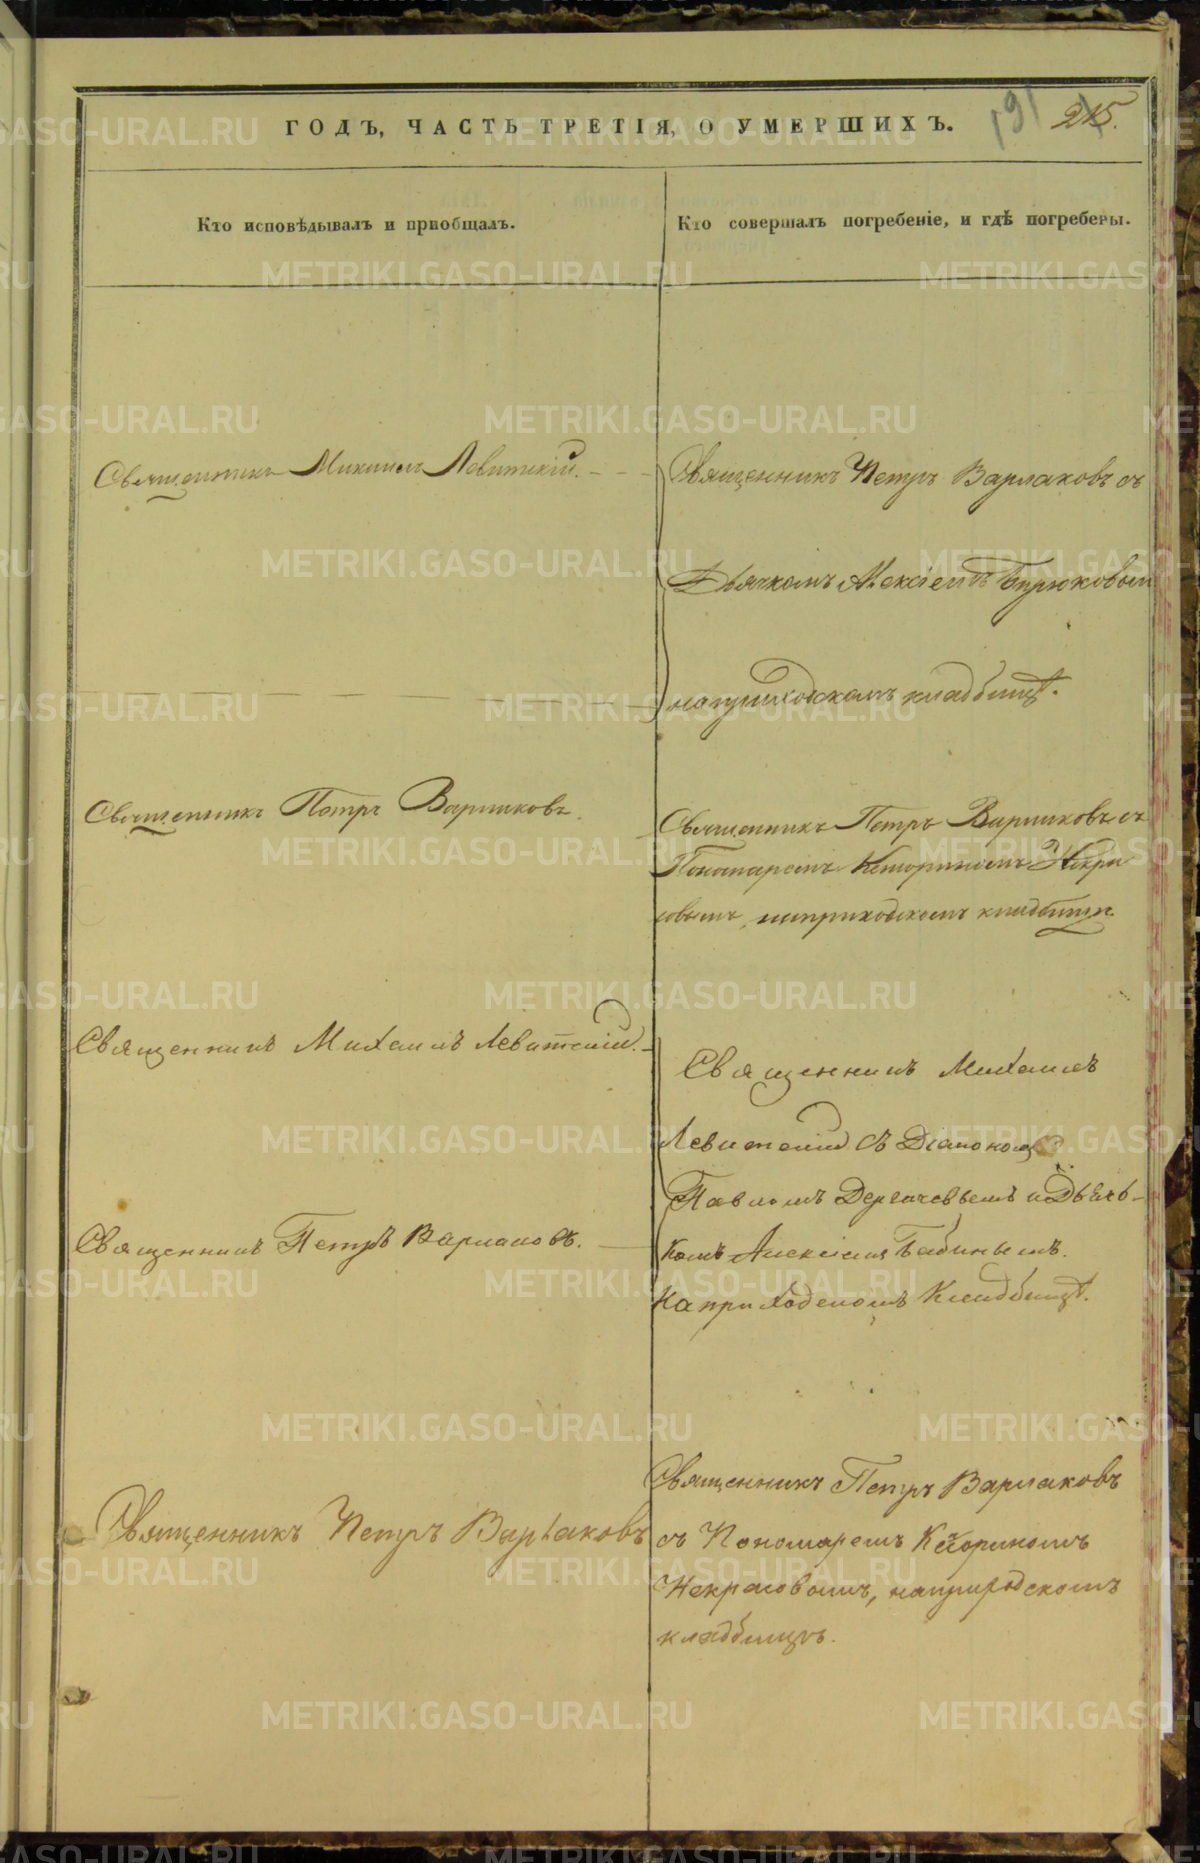 ГОДЪ, ЧАСТЬ ТРЕТІЯ, О УМЕРШИХЪ.
191 215.
Кто исповѣдывалъ и пріобщалъ.
Кто совершалъ погребеніе, и гдѣ погребены.
Священникъ Михаилъ Левитскій.
Священникъ Петръ Варлаковъ съ
Дьячкомъ Алексіемъ Бирюковым
на приходскомъ кладбищѣ.
Священникъ Петръ Варлаковъ.
Священникъ Петръ Варлаковъ съ
Пономаремъ Некра
совымъ, на приходскомъ кладбищѣ.
Священникъ Михаилъ Левитскій.
Священникъ Михаилъ
Левитскій съ Діакономъ
Павломъ Дергачевымъ и Дьяч-
комъ Алексіемъ Бабинымъ.
На приходскомъ Кладбищѣ.
Священникъ Петръ Варлаковъ.
Священникъ Петръ Варлаковъ
Священникъ Петръ Варлаковъ
съ Пономаремъ
Некрасовымъ, на приходскомъ
кладбищѣ.
METRIKI.GASO-URAL.RU